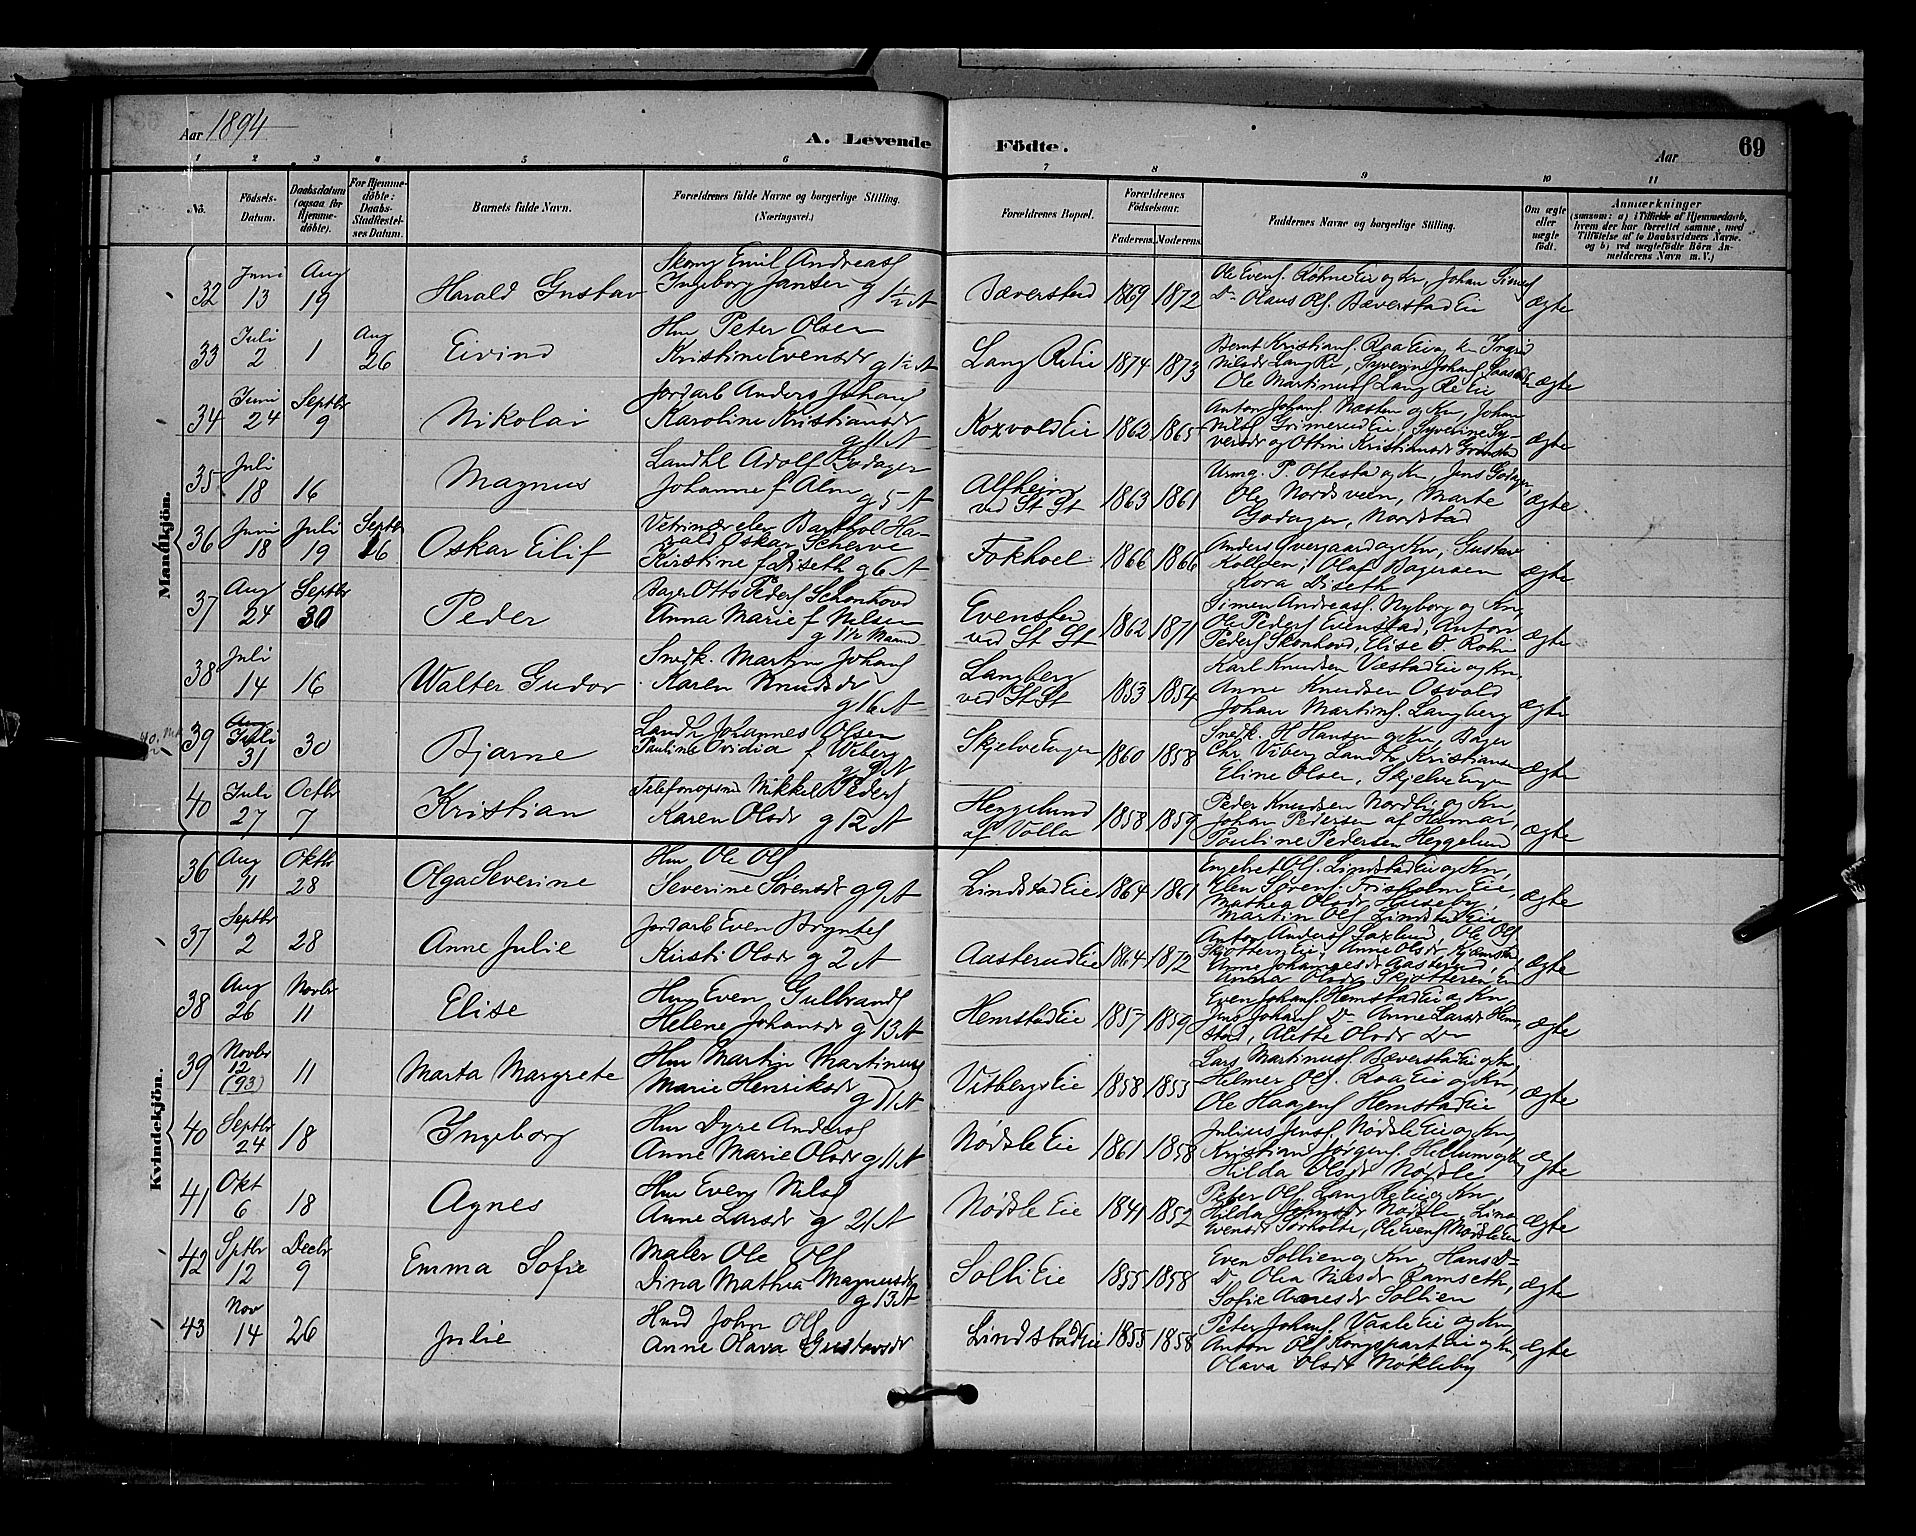 Aar 1894
A. Levende Födte.
Aar
69
1 2 3 4 5 6 7 8 9 10 11
No.
Födsels-Datum.
Daabsdatum (ogsaa for Hjemme-döbte).
For Hjemme-döbte: Daabs-Stadfæstel-ses Datum.
Barnets fulde Navn.
Forældrenes fulde Navne og borgerlige Stilling. (Næringsvei.)
Forældrenes Bopæl.
Forældrenes Födselsaar.
Faderens. Moderens.
Faddernes Navne og borgerlige Stilling.
Om ægte eller uægte födt.
Anmærkninger
(saasom: a) i Tilfælde af Hjemmedaab, hvem der har forrettet samme, med Tilföielse af to Daabsvidners Navne, og b) ved uægtefödte Börn An-melderens Navn m. V.)
Mandkjön.
32 Juni 13 Aug 19 Harald Gustav
Skom Emil Andreas
Ingeborg Jansen g 1½ A
Bæverstad 1869 1872
Ole Evens. Rohne Eie og Kn, Johan
Do Olaus Ols. Bæverstad Eie ægte
33 Juli 2 1 Aug 26 Eivind
Hm Peter Olsen
Kristine Evensdr g 1½ A
Lang Re Eie 1874 1873
Bernt Kristians. Raa Eie og Kn Ingrid
Nilsdr Lang Re, Syverine Johans.
Ole Martinus Lang Re Eie ægte
34 Juni 24 Septbr 9 Nikolai
Jordarb Anders Johans
Karoline Kristiansdr
g 11 A
Koxvold Eie 1862 1865
Anton Johans. Næsten og Kn, Johan
Nils Grimerud Eie, Syverine Sy-
versdr og Ottine Kristiansdr ægte
35 Juli 18 16 Magnus
Landhl Adolf Godager
Johanne f Alm g 5 A
Alfheim ved St St 1863 1861
Urmg. P. Ottestad og Kn, Jens Godager,
Ole Nordsveen, Marte
Godager, Nordstad ægte
36 Juni 18 Juli 19 Septbr 26 Oskar Eilif
Vetrinær elev Barthol Ha-
rald Oskar Scherve
Kristine f Diseth g 6 A
Fokhoel 1866 1866
Anders Øvergaard og Kn, Gustav
Kolden, Olaf Bageraen
Kora Diseth ægte
37 Aug 24 Septbr 30 Peder
Bager Otto Peders Skonhovd
Anna Marie f Nilsen
g 1½ Maaned
Evensted ved St St 1862 1871
Simen Andreas. Nyborg og Kn,
Ole Peders Evenstad, Anton
Peders Skonhovd, Elise O. Rohn ægte
38 Juli 14 16 Walter Gudor
Snedk. Martin Johans
Karen Knudsdr
g 16 A
Langberg ved St St 1853 1854
Karl Knudsen Væstad Eie og Kn,
Anne Knudsen Osvold
Johan Martins. Langberg ægte
39 Juli 31 30 Bjarne
Landh Johannes Olsen
Pauline Ovidia f Wiberg
g 9 A
Skjelve Engen 1860 1858
Snedk. H Hansen og Kn, Bager
Chr. Viberg, Landh Kristiansen
Eline Olsen, Skjelve Engen ægte
40 Juli 27 Octbr 7 Kristian
Telefonopsm Mikkel Peders
Karen Olsdr g 12 A
Heggelund af Volla 1858 1859
Peder Knudsen Nordli og Kn,
Johan Pedersen af Hamar,
Pauline Pedersen Heggelund ægte
Kvindekjön.
36 Aug 11 Oktbr 28 Olga Severine
Hm Ole Ols
Severine Sørensdr g 9 A
Lindstad Eie 1864 1861
Engebret Ols. Lindstad Eie og Kn,
Elen Sørens. Frisholm Eie,
Mathea Olsdr Huseby,
Martin Ols Lindstad Eie ægte
37 Septbr 2 28 Anne Julie
Jordarb Even Bryntes
Kirsti Olsdr g 2 A
Aasterud Eie 1864 1872
Anton Anders Saxlund, Ole Ols
Skjøtteren Eie, Anne Olsdr
Anne Johannesdr Aasterud,
Anna Olsdr Skjøtteren Eie ægte
38 Aug 26 Novbr 11 Elise
Hm Even Gulbrands
Helene Johansdr g 13 A
Hemstad Eie 1857 1859
Even Johans. Hemstad Eie og Kn,
Jens Johans Do Anne Larsdr Hem-
stad, Alette Olsdr Do ægte
39 Novbr 12 (93) 11 Marta Margrete
Hm Martin Martinus
Marie Henriksdr
g 11 A
Vitbergs Eie 1858 1855
Lars Martinus. Bæverstad Eie og Kn,
Helmer Ols. Raa Eie og Kn,
Ole Haagens Hemstad Eie ægte
40 Septbr 24 18 Ingeborg
Hm Dyre Anders
Anne Marie Olsdr g 11 A
Nødsle Eie 1861 1858
Julius Jens. Nødsle Eie og Kn,
Kristian Jørgens. Hellum og Kn
Hilda Olsdr Nødsle ægte
41 Okt 6 18 Agnes
Hm Even Nils
Anne Larsdr g 21 A
Nødsle Eie 1841 1852
Peter Ols. Lang Re Eie og Kn,
Hilda Johnsdr Nødsle, Lina
Evensdr Sørholte, Ole Evens Nødsle Eie ægte
42 Sptbr 12 Decbr 9 Emma Sofie
Maler Ole Ols
Dina Mathea Magnusdr
g 13 A
Solli Eie 1855 1858
Even Sollien og Kn, Hans Do
Do Olea Nilsdr Ramseth,
Sofie Arnesdr Sollien ægte
43 Nov 14 26 Julie
Husd John Ols
Anne Olava Gustavsdr
Lindstad Eie 1855 1858
Peter Johans Vaale Eie og Kn
Anton Ols Kongspart Eie og Kn,
Olava Olsdr Nøkleby ægte